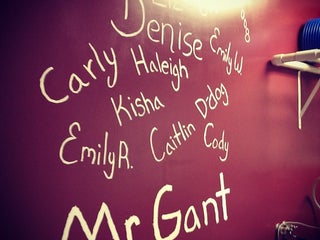 Denise
Emily W.
Carly Haleigh
Kisha D-dog
Emily R. Caitlin Cody
Mr Gant